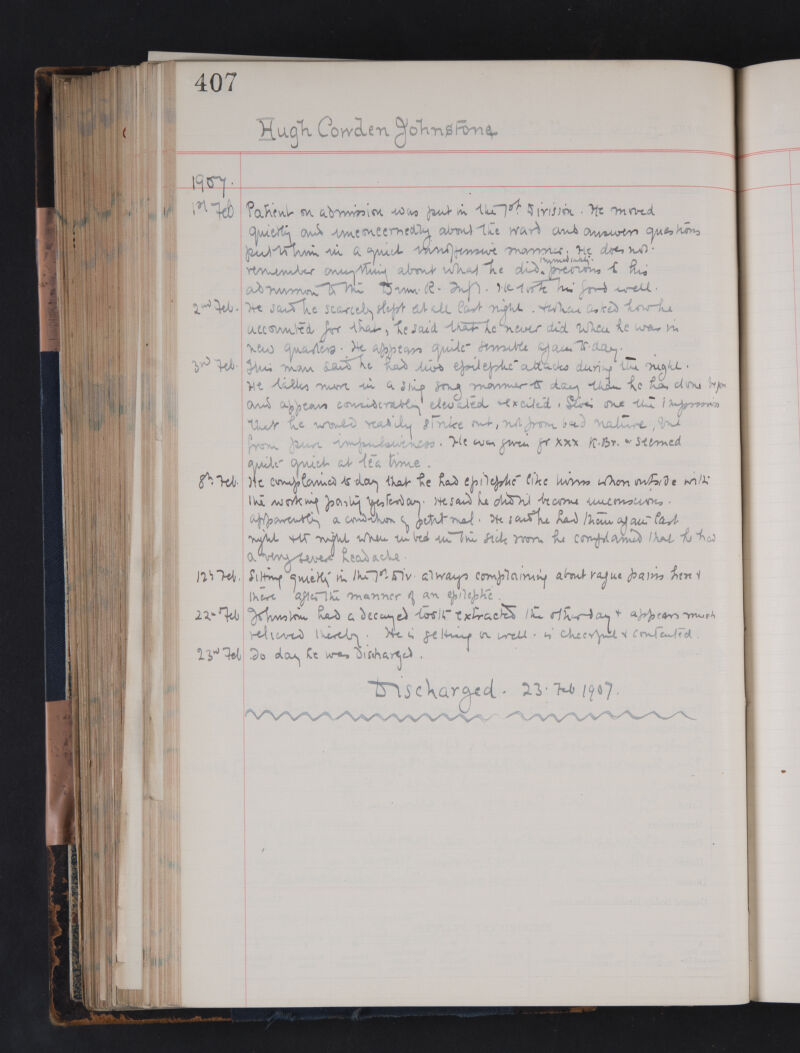 407
Hugh Cowden Johnstone
1907.
1st Feb Patient on admission was put in the 1st Division. He moved
quietly and unconcernedly about the ward and answers questions
put to him in a quiet inoffensive manner. He does not
remember anything about what he did immediately previous to his
admission to the Dum. R. Inf). He took his food well.
2nd Feb. He said he scarcely slept at all last night. & when asked how he
accounted for that, he said that he never did when he was in
new quarters. He appears quite sensible again to day.
3rd Feb. This man said he had two epileptic attacks during the night.
He talks more in a sing song manner to day than he has done before
and appears considerably elevated & excited. Gives one the impression
that he would readily strike out, not from bad nature, but
from pure impulsiveness. He was given gr xxx K.Br. & seemed
quite quiet at tea time.
8th Feb. He complained to day that he had epileptic like turns when outside with
the working party yesterday. He said he didn't become unconscious.
apparently a condition of petit mal. He said he had them again last
night & to night when in bed in the sick room he complained that he had
a very severe headache.
12th Feb. Sitting quietly in the 1st Div. always complaining about vague pains here &
there after the manner of an epileptic.
22nd Feb Johnstone had a decayed tooth extracted the other day & appears much
relieved thereby. He is getting on well. is cheerful & contented.
23rd Feb To day he was discharged.
Discharged. 23. Feb 1907.